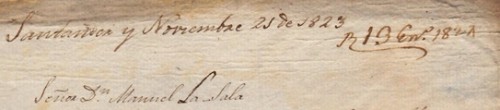 Santander y Noviembre 21 de 1823
R 13 En.o 1824
Señor Dn. Manuel La Sala